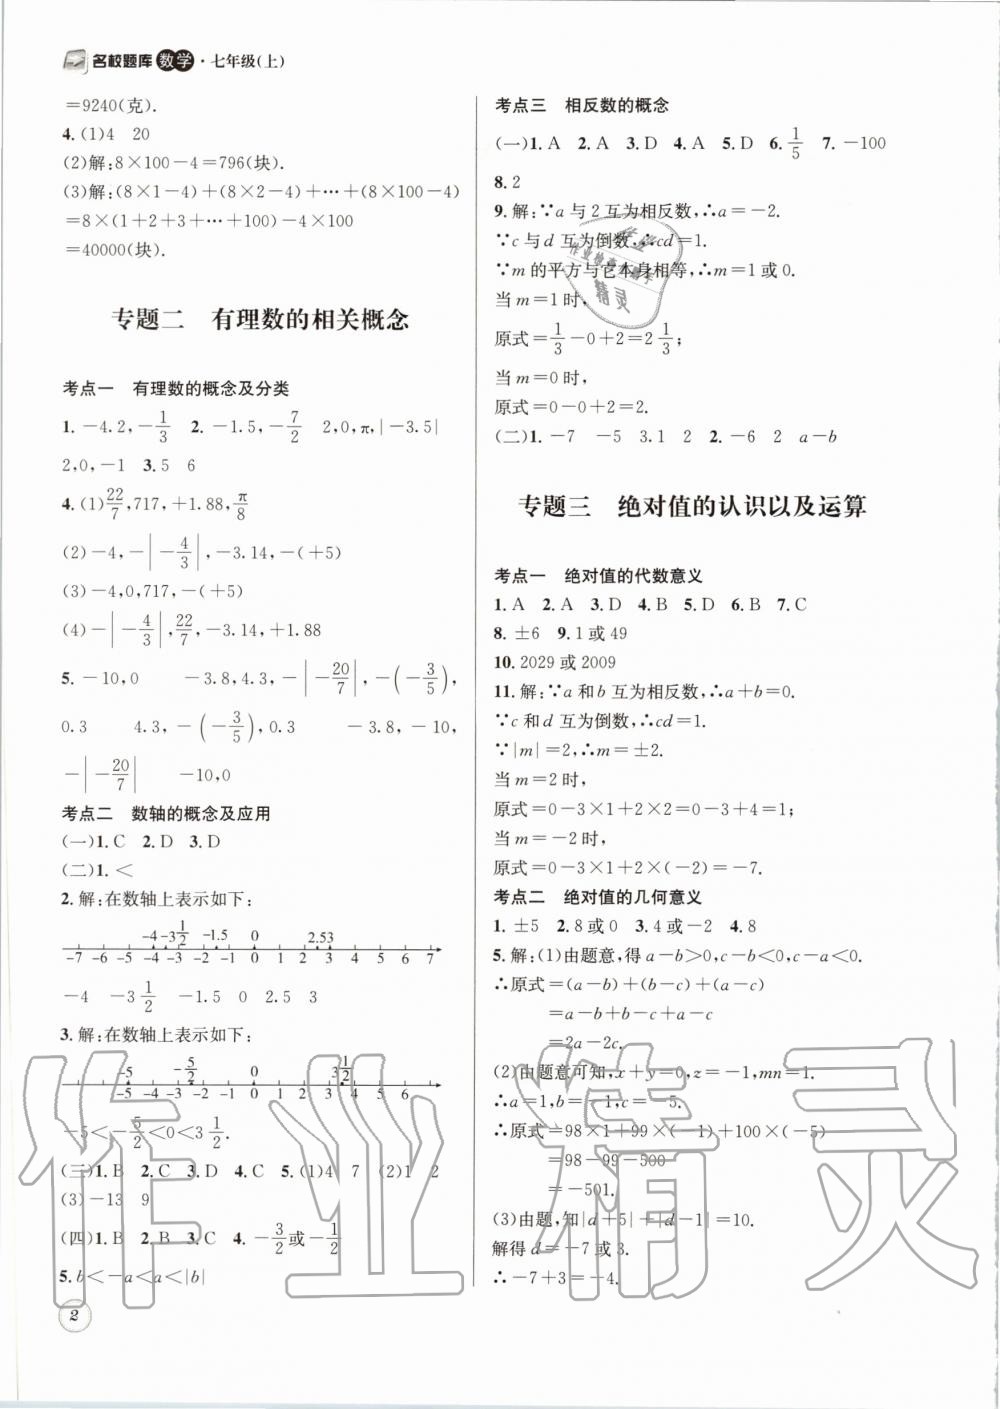 名校题库 数学·七年级(上)
=9240(克).
4.(1)4 20
(2)解:8×100-4=796(块).
(3)解:(8×1-4)+(8×2-4)+…+(8×100-4)
=8×(1+2+3+…+100)-4×100
=40000(块).
专题二 有理数的相关概念
考点一 有理数的概念及分类
1. -4.2,-1/3 2. -1.5,-7/2 2,0,π,|-3.5|
2,0,-1 3.5 6
4.(1)22/7,717,+1.88,π/8
(2)-4,-|-4/3|,-3.14,-(+5)
(3)-4,0,717,-(+5)
(4)-|-4/3|,22/7,-3.14,+1.88
5. -10,0 -3.8,4.3,-|-20/7|,-(-3/5),
0.3 4.3,-(-3/5),0.3 -3.8,-10,
-|-20/7| -10,0
考点二 数轴的概念及应用
(一)1. C 2. D 3. D
(二)1. <
2. 解:在数轴上表示如下:
-4 -3 1/2 -1.5 0 2.5 3
-7 -6 -5 -4 -3 -2 -1 0 1 2 3 4 5 6 7
-4 -3 1/2 -1.5 0 2.5 3
3. 解:在数轴上表示如下:
-5 -5/2 0 3 1/2
-5 -4 -3 -2 -1 0 1 2 3 4 5 6
-5<-5/2<0<3 1/2.
(三)1. B 2. C 3. D 4. C 5. (1)4 7 (2)1 2
(3)-13 9
(四)1. B 2. B 3. C 4. -3/2或-1/2
5. b<-a<a<|b|
2
考点三 相反数的概念
(一)1. A 2. A 3. D 4. A 5. D 6. 1/5 7. -100
8. 2
9. 解:∵a与2互为相反数,∴a=-2.
∵c与d互为倒数,∴cd=1.
∵m的平方与它本身相等,∴m=1或0.
当m=1时,
原式=1/3-0+2=2 1/3;
当m=0时,
原式=0-0+2=2.
(二)1. -7 -5 3.1 2 2. -6 2 a-b
专题三 绝对值的认识以及运算
考点一 绝对值的代数意义
1. A 2. A 3. D 4. B 5. D 6. B 7. C
8. ±6 9. 1或49
10. 2029或2009
11. 解:∵a和b互为相反数,∴a+b=0.
∵c和d互为倒数,∴cd=1.
∵|m|=2,∴m=±2.
当m=2时,
原式=0-3×1+2×2=0-3+4=1;
当m=-2时,
原式=0-3×1+2×(-2)=-7.
考点二 绝对值的几何意义
1. ±5 2. 8或0 3. 4或-2 4. 8
5. 解:(1)由题意,得a-b>0,c-b<0,c-a<0.
∴原式=(a-b)+(b-c)+(a-c)
=a-b+b-c+a-c
=2a-2c.
(2)由题意可知,x+y=0,z=-1,mn=1.
∴a=1,b=-1,c=-5.
∴原式=98×1+99×(-1)+100×(-5)
=98-99-500
=-501.
(3)由题,知|d+5|+|d-1|=10.
解得d=-7或3.
∴-7+3=-4.
作业精灵